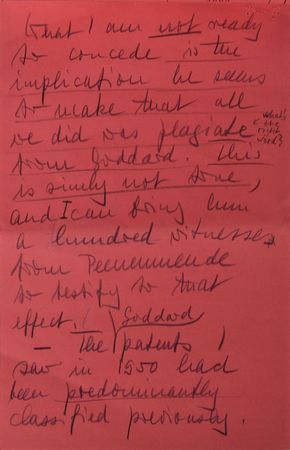 What I am not ready
to concede is the
implication he seems
to make that all
we did was plagiate
(what's the right word?)
from Goddard. This
is simply not true,
and I can bring him
a hundred witnesses
from Peenemuende
to testify to that
effect.
Goddard
– The patents I
saw in 1950 had
been predominantly
classified previously.